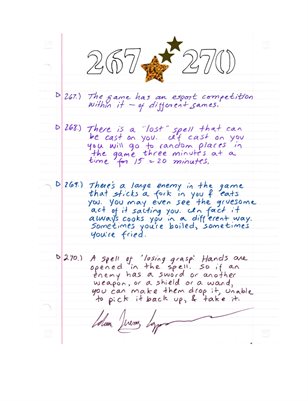 267 270
267.) The game has an esport competition
within it - of different games.
268.) There is a "lost" spell that can
be cast on you. If cast on you
you will go to random places in
the game three minutes at a
time for 15 - 20 minutes.
269.) There's a large enemy in the game
that sticks a fork in you & eats
you. You may even see the gruesome
act of it salting you. In fact it
always cooks you in a different way.
Sometimes you're boiled, sometimes
you're fried.
270.) A spell of 'losing grasp'. Hands are
opened in the spell. So if an
enemy has a sword or another
weapon, or a shield or a wand,
you can make them drop it, unable
to pick it back up, & take it.